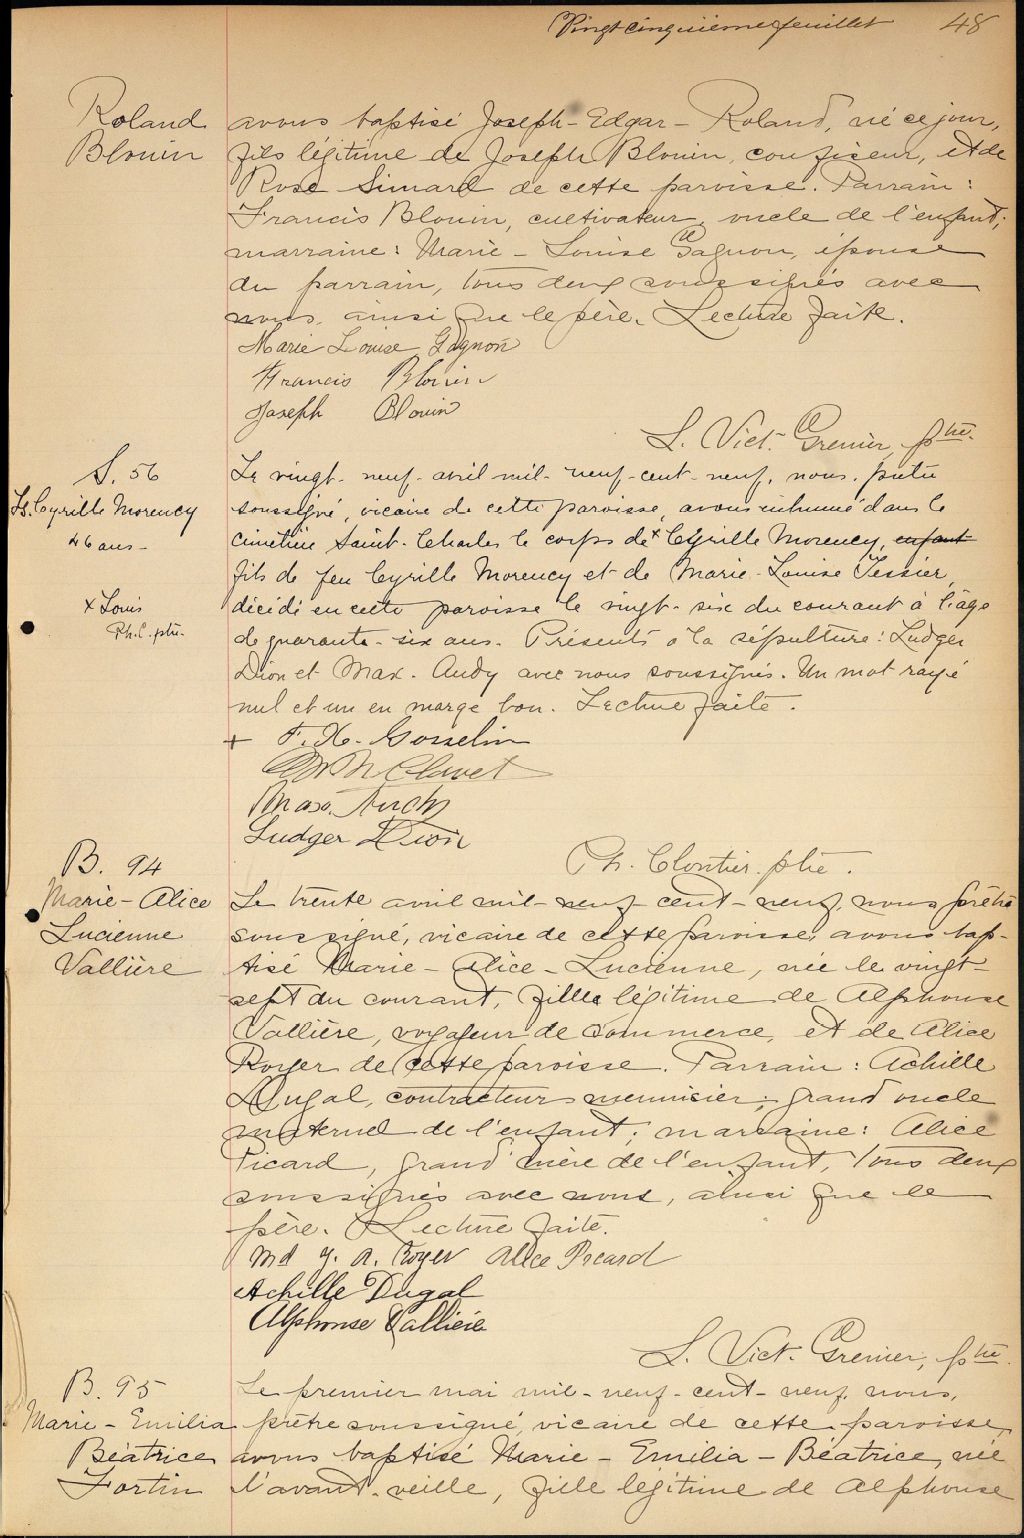 Vingt cinquième feuillet 48
Roland
Blouin
avons baptisé Joseph-Edgar-Roland, né ce jour,
fils légitime de Joseph Blouin, confiseur, et de
Rose Simard de cette paroisse. Parrain:
Francis Blouin, cultivateur, oncle de l'enfant;
marraine: Marie-Louise Gagnon, épouse
du parrain, tous deux soussignés avec
nous, ainsi que le père. Lecture faite.
Marie Louise Gagnon
Francis Blouin
Joseph Blouin
L. Vict. Grenier, ptre.
S. 56
Ls. Cyrille Morency
46 ans-
x Louis
Ph. C. ptre.
Le vingt-neuf-avril mil-neuf-cent-neuf, nous, prêtre
soussigné, vicaire de cette paroisse, avons inhumé dans le
cimetière Saint-Charles le corps de x Cyrille Morency, enfant
fils de feu Cyrille Morency et de Marie-Louise Tessier,
décédé en cette paroisse le vingt-six du courant à l'âge
de quarante-six ans. Présents à la sépulture: Ludger
Dion et Max. Audy avec nous soussignés. Un mot rayé
nul et un en marge bon. Lecture faite.
+ F. X. Gosselin
Clavet
Max. Audy
Ludger Dion
Ph. Cloutier. ptre.
B. 94
Marie-Alice
Lucienne
Vallière
Le trente avril mil-neuf cent-neuf, nous prêtre
soussigné, vicaire de cette paroisse, avons bap-
tisé Marie-Alice-Lucienne, née le vingt-
sept du courant, fille légitime de Alphonse
Vallière, voyageur de commerce, et de Alice
Royer de cette paroisse. Parrain: Achille
Dugal, contracteur menuisier, grand oncle
maternel de l'enfant; marraine: Alice
Picard, grand'mère de l'enfant, tous deux
soussignés avec nous, ainsi que le
père. Lecture faite.
Md J. A. Royer Alice Picard
Achille Dugal
Alphonse Vallière
L. Vict. Grenier, ptre.
B. 95
Marie-Emilia
Béatrice
Fortin
Le premier mai mil-neuf-cent-neuf, nous,
prêtre soussigné, vicaire de cette paroisse,
avons baptisé Marie-Emilia-Béatrice, née
l'avant-veille, fille légitime de Alphonse